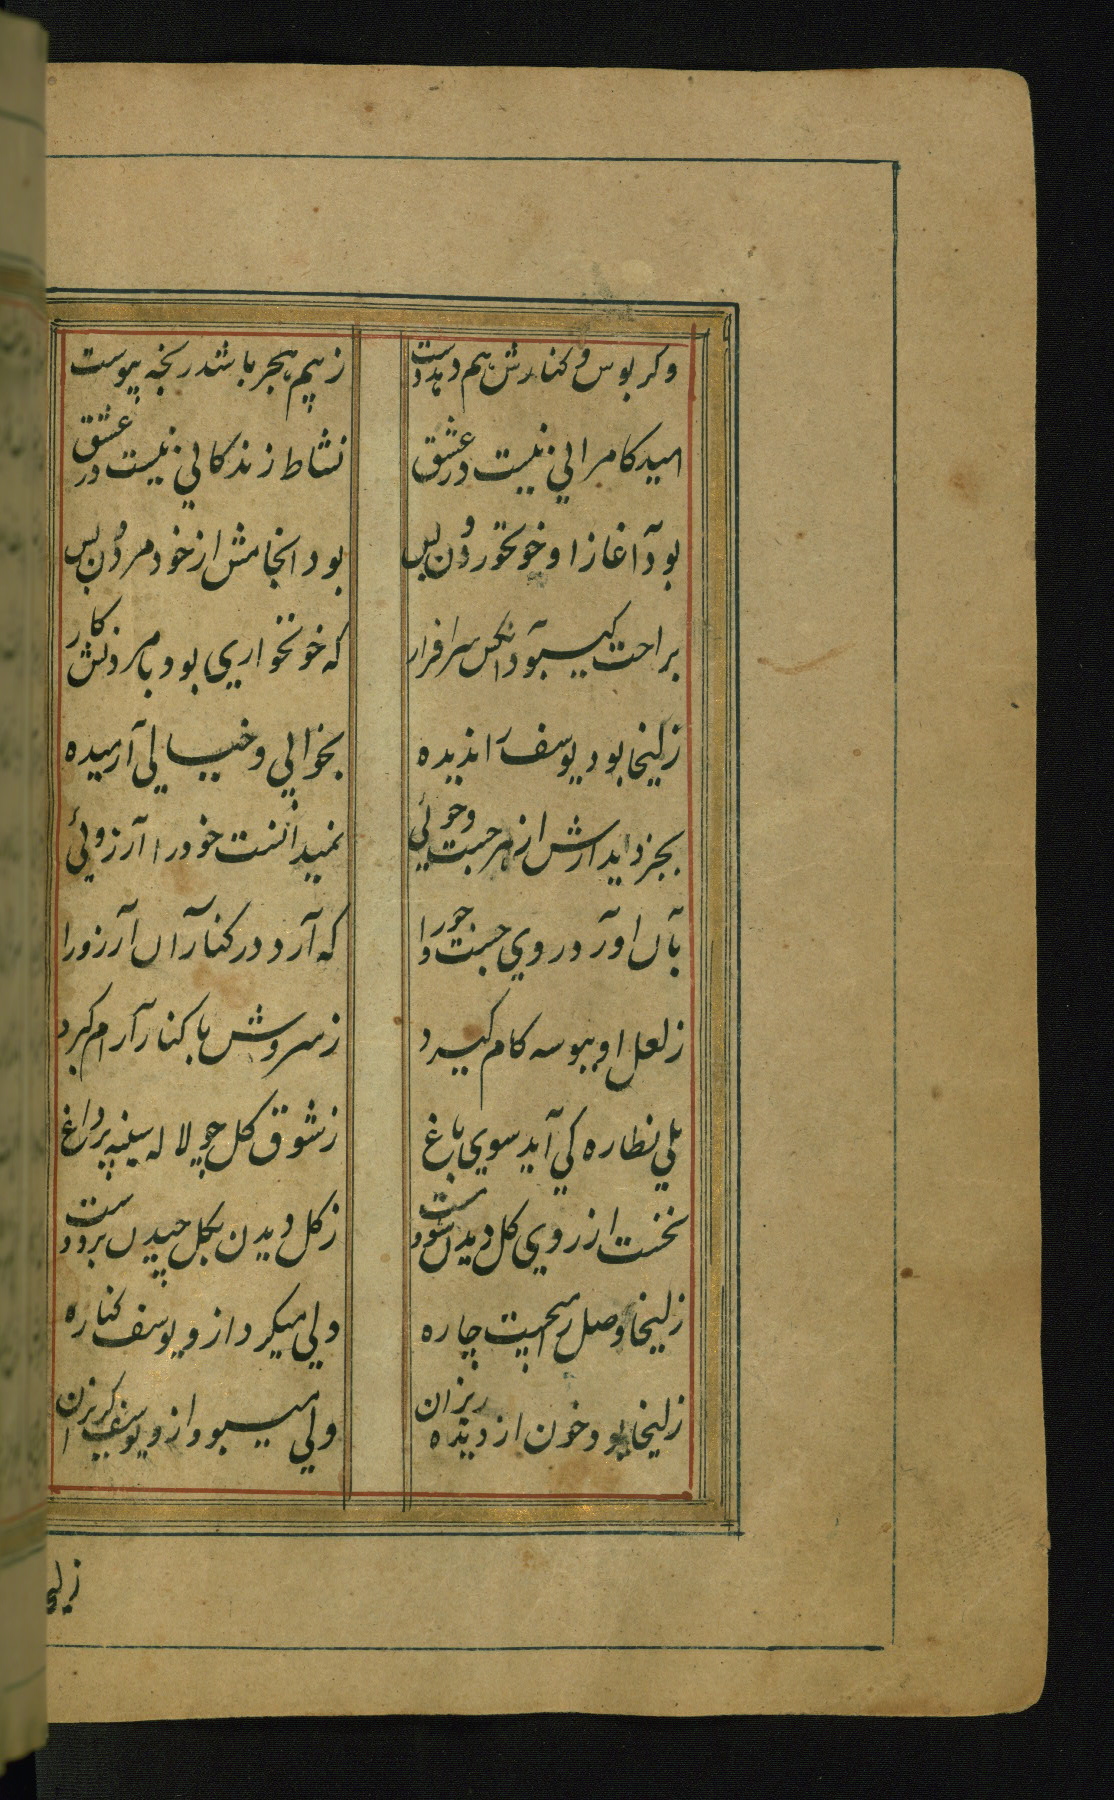 وکر بوس و کنارش هم دهد دست
ز بیم هجر باشد رنجه پیوست
امید کامرانی نیست در عشق
نشاط زندکانی نیست در عشق
بود آغاز او خونخوردن و بس
بود انجامش از خود مردن و بس
براحت کی بود آنکس سرافراز
که خونخواری بود با مردنش کار
زلیخا بود یوسف را ندیده
بخوابی و خیالی آرمیده
بجز دیدارش از هر جست و جوئی
نمیدانست خود را آرزوئی
بآن آورد روی جست و جو را
که آرد در کنار آن آرزو را
ز لعل او ببوسه کام کیرد
ز سروش با کنار آرام کیرد
بلی نظاره کی آید سوی باغ
ز شوق کل چو لاله سینه پر داغ
نخست از روی کل دیدن شود مست
ز کل دیدن بکل چیدن برد دست
زلیخا وصل را میجست چاره
ولی میکرد ازو یوسف کناره
زلیخا بود خون از دیده ریزان
ولی میبود ازو یوسف کریزان